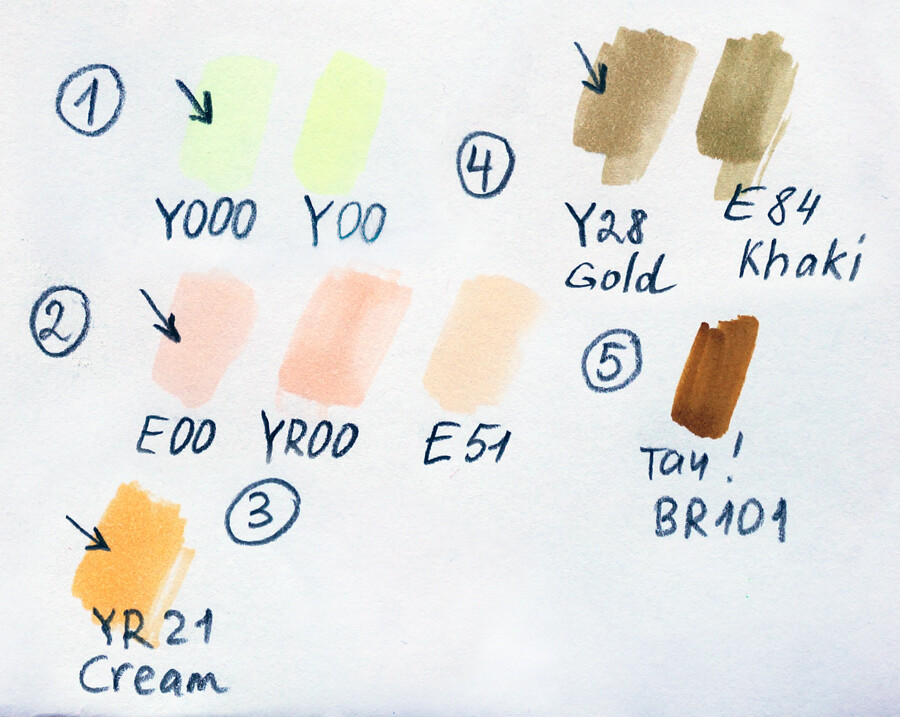 1
Y000 Y00
2
E00 YR00 E51
3
YR21
Cream
4
Y28 E84
Gold Khaki
5
Tan!
BR101